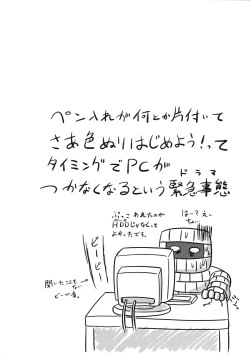 ペン入れが何とか片付いて
さあ色ぬりはじめよう!って
タイミングでPCが
ドラマ
つかなくなるという緊急事態
こわれたのが
HDDじゃなくって
よかったです。
ピーピー
聞いたことも
ない
ビープ音。